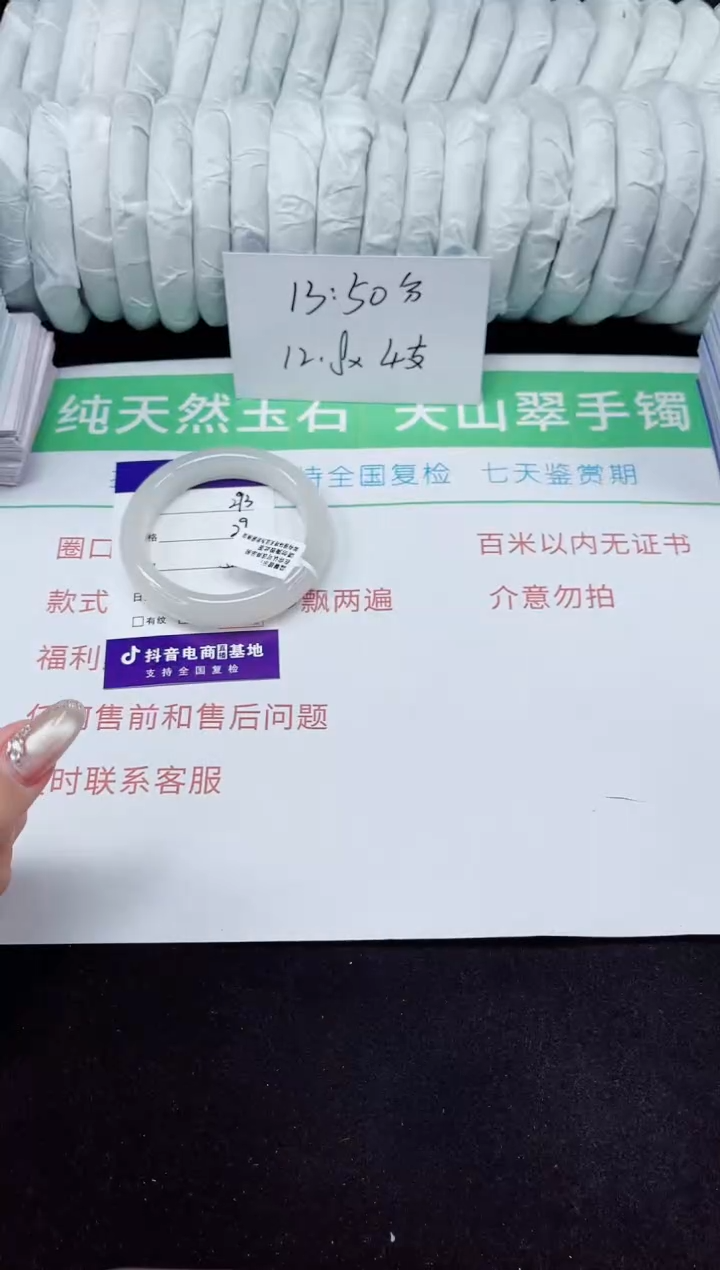 13:50分
4支
纯天然玉石 天山翠手镯
持全国复检 七天鉴赏期
圈口
百米以内无证书
款式
飘两遍
介意勿拍
格
有纹
福利
抖音电商直播基地
支持全国复检
售前和售后问题
时联系客服